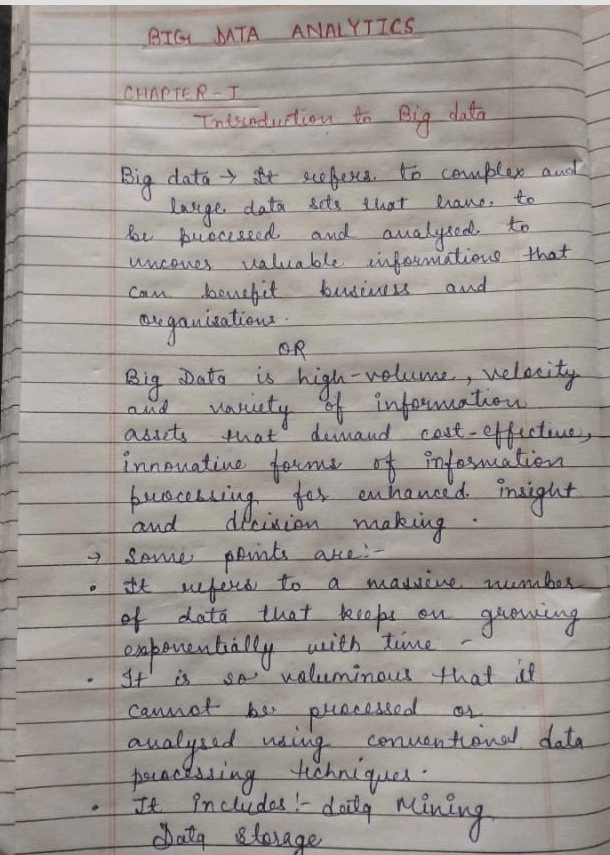 BIG DATA ANALYTICS
CHAPTER-I
Introduction to Big data
Big data → It refers to complex and
large data sets that have to
be processed and analysed to
uncover valuable informations that
can benefit business and
organisations.
OR
Big Data is high-volume, velocity
and variety of information
assets that demand cost-effective,
innovative forms of information
processing for enhanced insight
and decision making.
→ Some points are:-
• It refers to a massive number
of data that keeps on growing
exponentially with time -
• It is so voluminous that it
cannot be processed or
analysed using conventional data
processing techniques.
• It includes:- data Mining
Data Storage